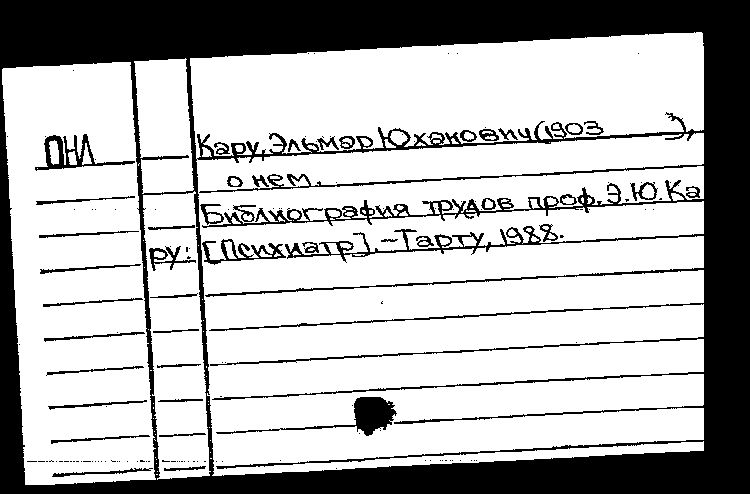 ОНЛ Кару, Эльмар Юханович (1903 ),
о нем.
Библиография трудов проф. Э.Ю.Ка
ру: [Психиатр]. - Тарту, 1988.